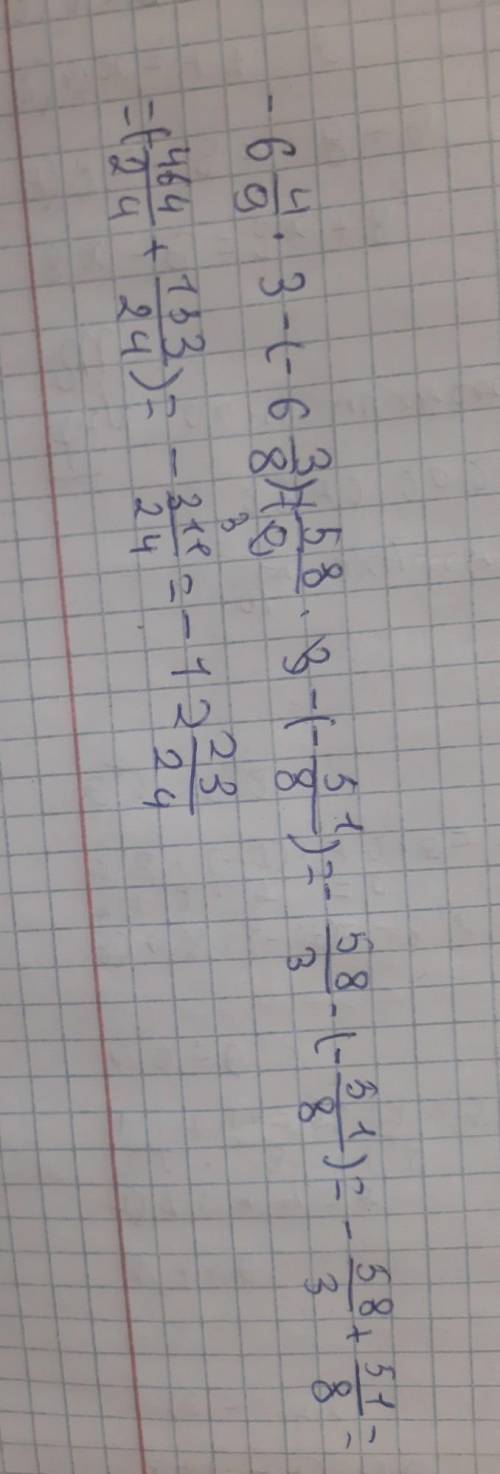 - 6 4/9 · 3 - (- 6 3/8) = - 58/9 · 3 - (- 51/8) = - 58/3 - (- 51/8) = - 58/3 + 51/8 =
= (- 464/24 + 153/24) = - 311/24 = - 12 23/24